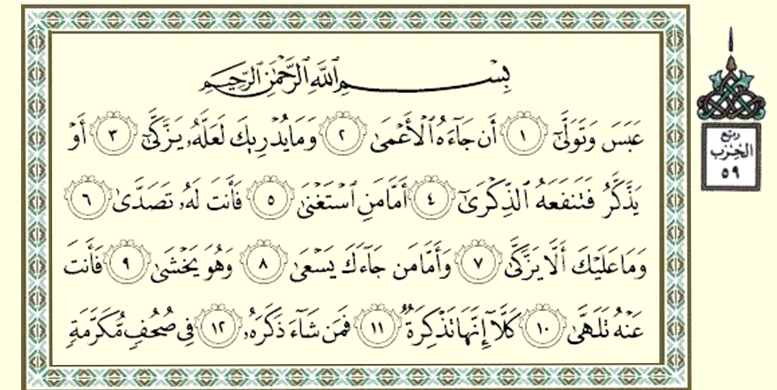 بِسْمِ اللَّهِ الرَّحْمَٰنِ الرَّحِيمِ
عَبَسَ وَتَوَلَّىٰٓ ١ أَن جَآءَهُ الْأَعْمَىٰ ٢ وَمَا يُدْرِيكَ لَعَلَّهُۥ يَزَّكَّىٰٓ ٣ أَوْ
يَذَّكَّرُ فَتَنفَعَهُ الذِّكْرَىٰٓ ٤ أَمَّا مَنِ اسْتَغْنَىٰ ٥ فَأَنتَ لَهُۥ تَصَدَّىٰ ٦
وَمَا عَلَيْكَ أَلَّا يَزَّكَّىٰ ٧ وَأَمَّا مَن جَآءَكَ يَسْعَىٰ ٨ وَهُوَ يَخْشَىٰ ٩ فَأَنتَ
عَنْهُ تَلَهَّىٰ ١٠ كَلَّآ إِنَّهَا تَذْكِرَةٌ ١١ فَمَن شَآءَ ذَكَرَهُۥ ١٢ فِي صُحُفٍ مُّكَرَّمَةٍ
ربع
الحزب
٥٩